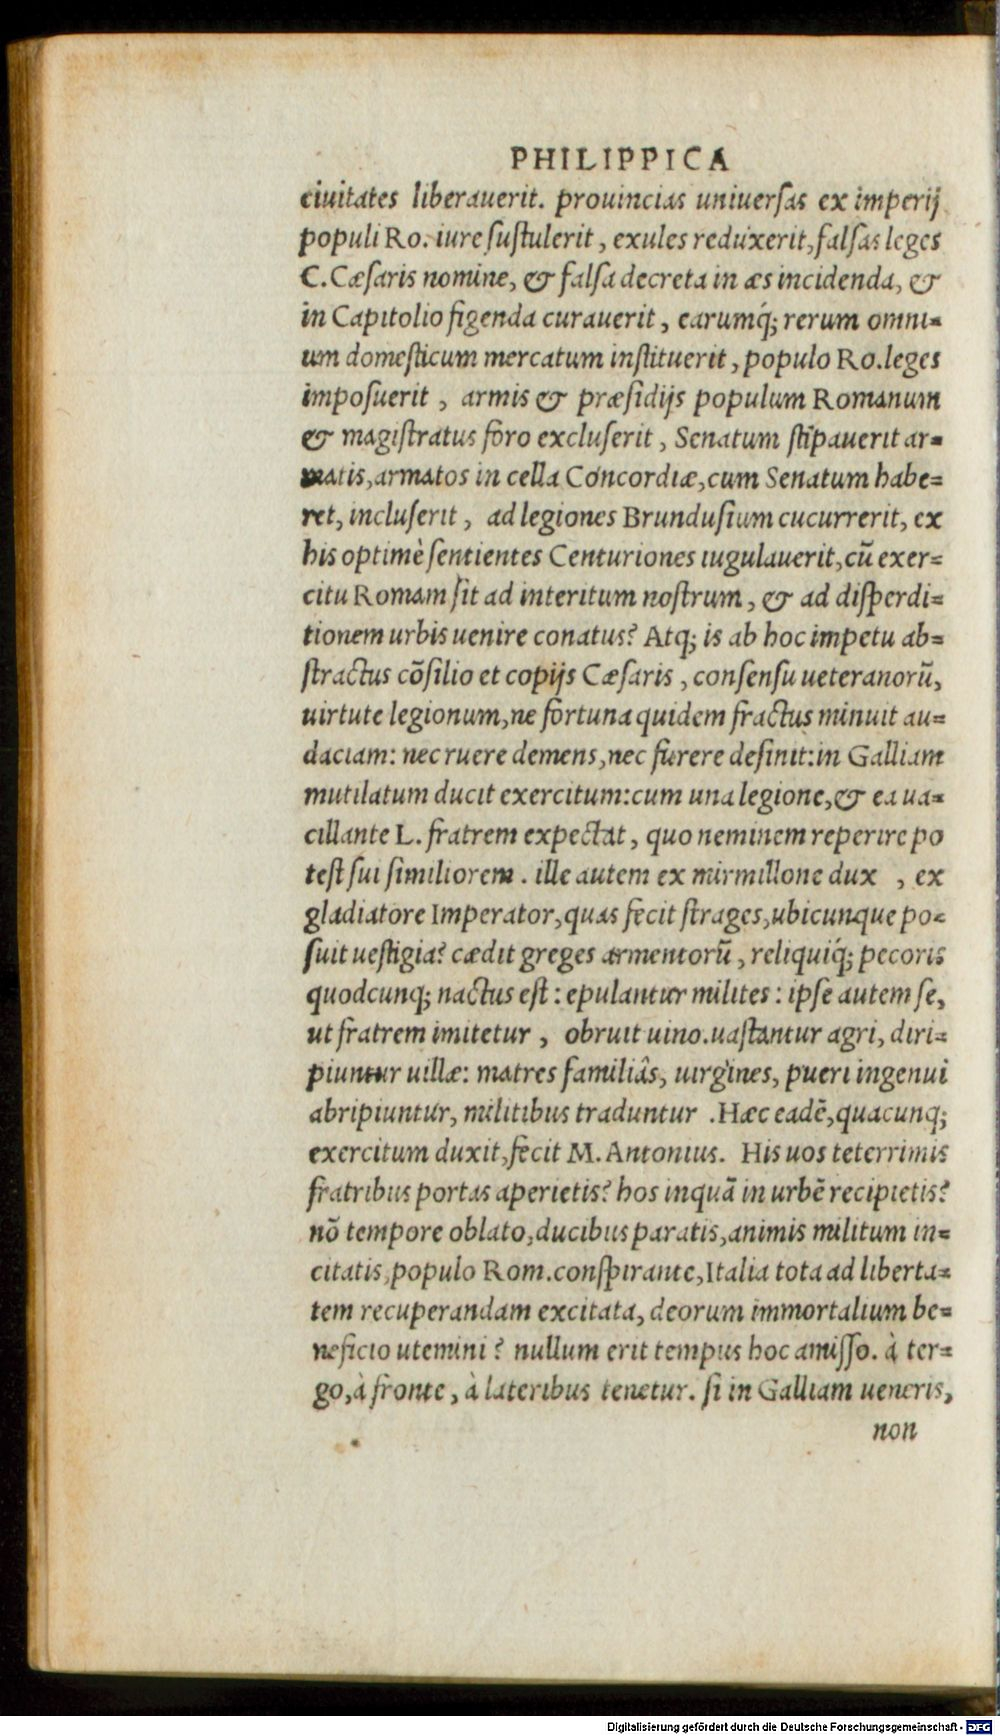 PHILIPPICA
ciuitates liberauerit. prouincias uniuersas ex imperij
populi Ro. iure sustulerit, exules reduxerit, falsas leges
C. Cæsaris nomine, & falsa decreta in æs incidenda, &
in Capitolio figenda curauerit, earumq́; rerum omni-
um domesticum mercatum instituerit, populo Ro. leges
imposuerit, armis & præsidijs populum Romanum
& magistratus foro excluserit, Senatum stipauerit ar-
matis, armatos in cella Concordiæ, cum Senatum habe-
ret, incluserit, ad legiones Brundusium cucurrerit, ex
his optimè sentientes Centuriones iugulauerit, cū exer-
citu Romam sit ad interitum nostrum, & ad disperdi-
tionem urbis uenire conatus? Atq; is ab hoc impetu ab-
stractus cōsilio et copijs Cæsaris, consensu ueteranorū,
uirtute legionum, ne fortuna quidem fractus minuit au-
daciam: nec ruere demens, nec furere desinit: in Galliam
mutilatum ducit exercitum: cum una legione, & ea ua-
cillante L. fratrem expectat, quo neminem reperire po
test sui similiorem. ille autem ex mirmillone dux, ex
gladiatore Imperator, quas fecit strages, ubicunque po-
suit uestigia? cædit greges armentorū, reliquiq́; pecoris
quodcunq; nactus est: epulantur milites: ipse autem se,
ut fratrem imitetur, obruit uino. uastantur agri, diri-
piuntur uillæ: matres familiâs, uirgines, pueri ingenui
abripiuntur, militibus traduntur. Hæc eadē, quacunq;
exercitum duxit, fecit M. Antonius. His uos teterrimis
fratribus portas aperietis? hos inquā in urbē recipietis?
nō tempore oblato, ducibus paratis, animis militum in-
citatis, populo Rom. conspirante, Italia tota ad liberta-
tem recuperandam excitata, deorum immortalium be-
neficio utemini? nullum erit tempus hoc amisso. à ter-
go, à fronte, à lateribus tenetur. si in Galliam ueneris,
non
Digitalisierung gefördert durch die Deutsche Forschungsgemeinschaft - DFG